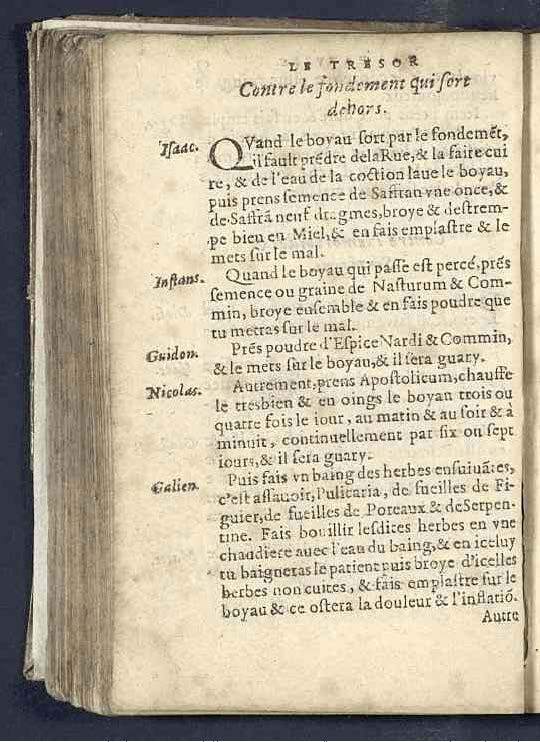 LE TRESOR
Contre le fondement qui ſort
dehors.
Iſaac.
QVand le boyau ſort par le fondemẽt,
il fault prẽdre dela Rue, & la faire cui
re, & de l'eau de la coction laue le boyau,
puis prens ſemence de Saffran vne once, &
de Saffrã neuf dragmes, broye & deſtrem-
pe bien en Miel, & en fais emplaſtre & le
mets ſur le mal.
Inſtans.
Quand le boyau qui paſſe eſt percé, prẽs
ſemence ou graine de Naſturum & Com-
min, broye enſemble & en fais poudre que
tu metras ſur le mal.
Guidon.
Prẽs poudre d'Eſpice Nardi & Commin,
& le mets ſur le boyau, & il ſera guary.
Nicolas.
Autrement, prens Apoſtolicum, chauffe
le treſbien & en oings le boyau trois ou
quatre fois le iour, au matin & au ſoir & à
minuit, continuellement par ſix ou ſept
iours, & il ſera guary.
Galien.
Puis fais vn baing des herbes enſuiuãtes,
c'eſt aſſauoir, Pulicaria, de fueilles de Fi-
guier, de fueilles de Poreaux & de Serpen-
tine. Fais bouillir leſdites herbes en vne
chaudiere auec l'eau du baing, & en iceluy
tu baigneras le patient puis broye d'icelles
herbes non cuites, & fais emplaſtre ſur le
boyau & ce oſtera la douleur & l'inflatiõ.
Autre